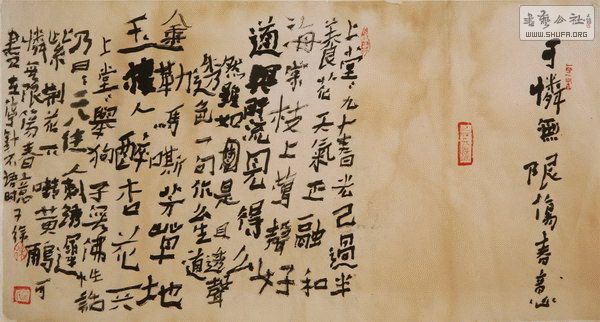 書藝公社
WWW.SHUFA.ORG
可憐無限傷春意
上堂九十春光已過半
養花天氣正融和
海棠枝上鶯聲好
道與時流見得么
然雖如是且透聲
色一句作么生道
金勒馬嘶芳草地
玉樓人醉杏花天
上堂舉狗子無佛性話
乃曰二八佳人刺繡遲
紫荊花下囀黃鸝可
憐無限傷春意
盡在停針不語時